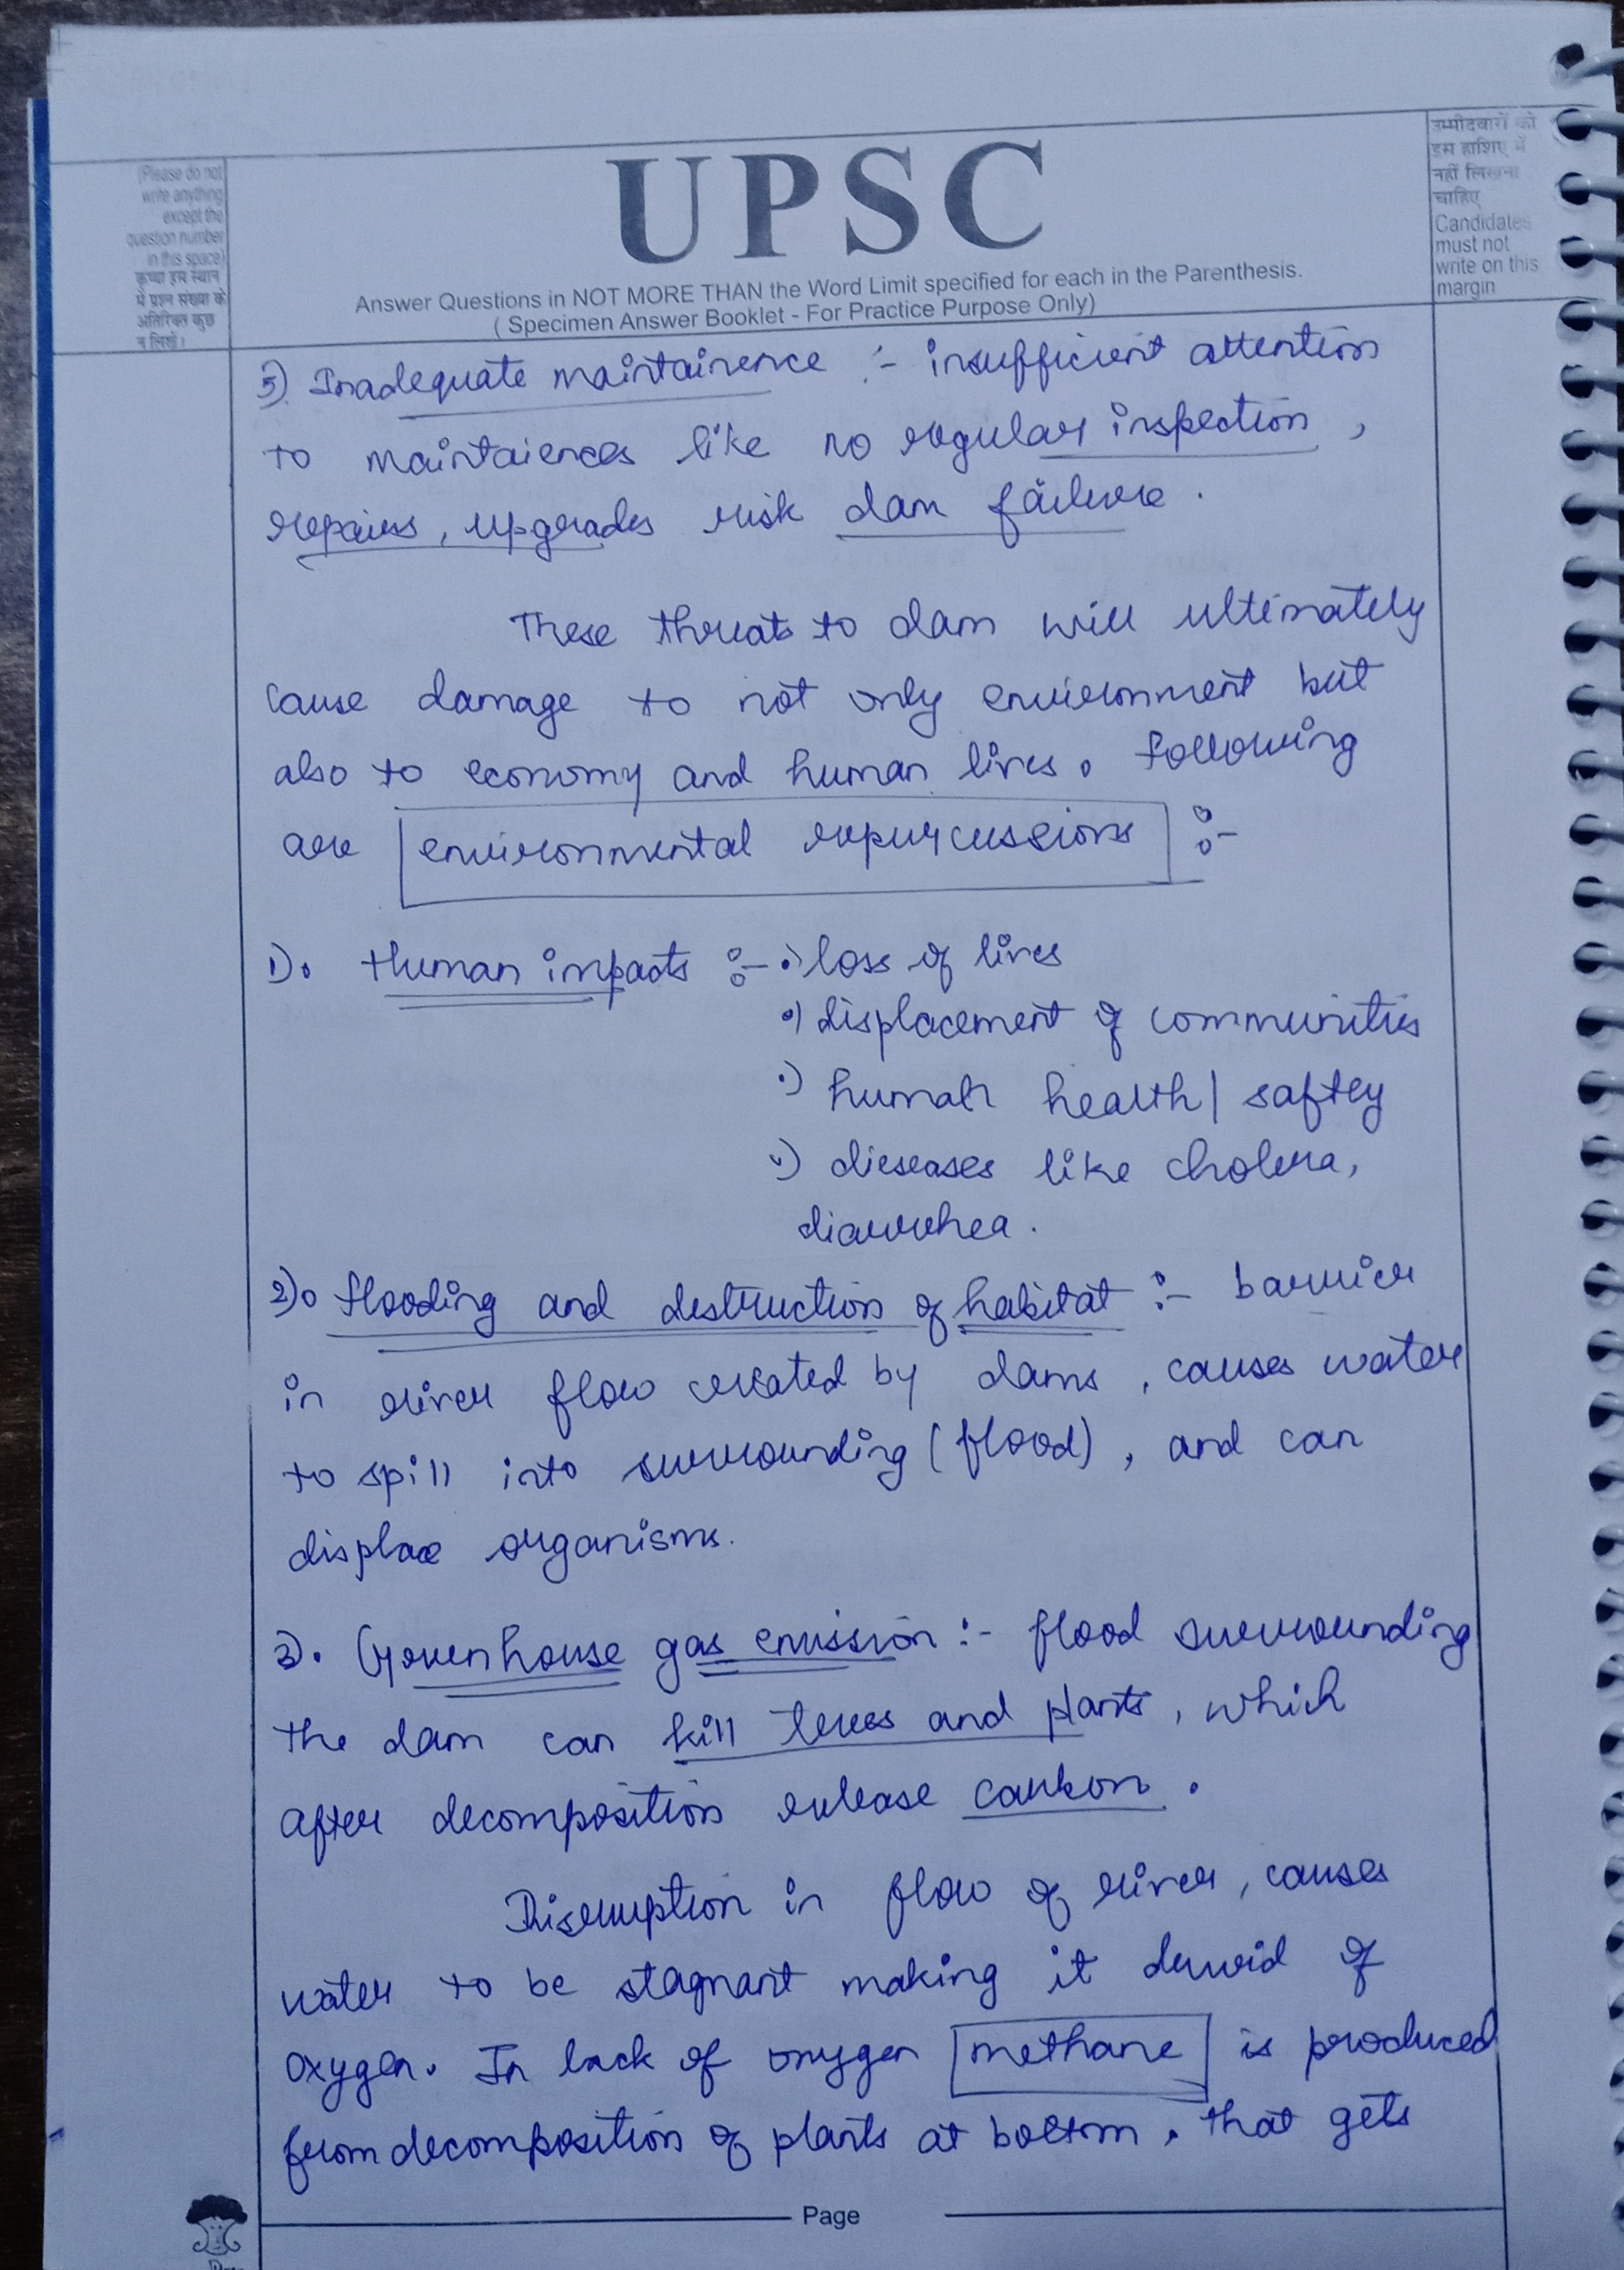 (Please do not
write anything
except the
question number
in this space)
कृपया इस स्थान
में प्रश्न संख्या के
अतिरिक्त कुछ
न लिखें।
UPSC
Answer Questions in NOT MORE THAN the Word Limit specified for each in the Parenthesis.
( Specimen Answer Booklet - For Practice Purpose Only)
उम्मीदवारों को
इस हाशिए में
नहीं लिखना
चाहिए
Candidates
must not
write on this
margin
5) Inadequate maintainence :- insufficient attention
to maintaiences like no regular inspection,
repairs, upgrades risk dam failure.
These threats to dam will ultimately
cause damage to not only environment but
also to economy and human lives. Following
are environmental repurcussions :-
1). Human impacts :- •) loss of lives
•) displacement of communities
•) human health / saftey
•) dieseases like cholera,
diarrhea.
2). flooding and destruction of habitat :- barrier
in river flow created by dams, causes water
to spill into surrounding (flood), and can
displace organisms.
3). Greenhouse gas emission :- flood surrounding
the dam can kill trees and plants, which
after decomposition release carbon.
Disruption in flow of river, causes
water to be stagnant making it devoid of
oxygen. In lack of oxygen methane is produced
from decomposition of plants at bottom. that gets
Page